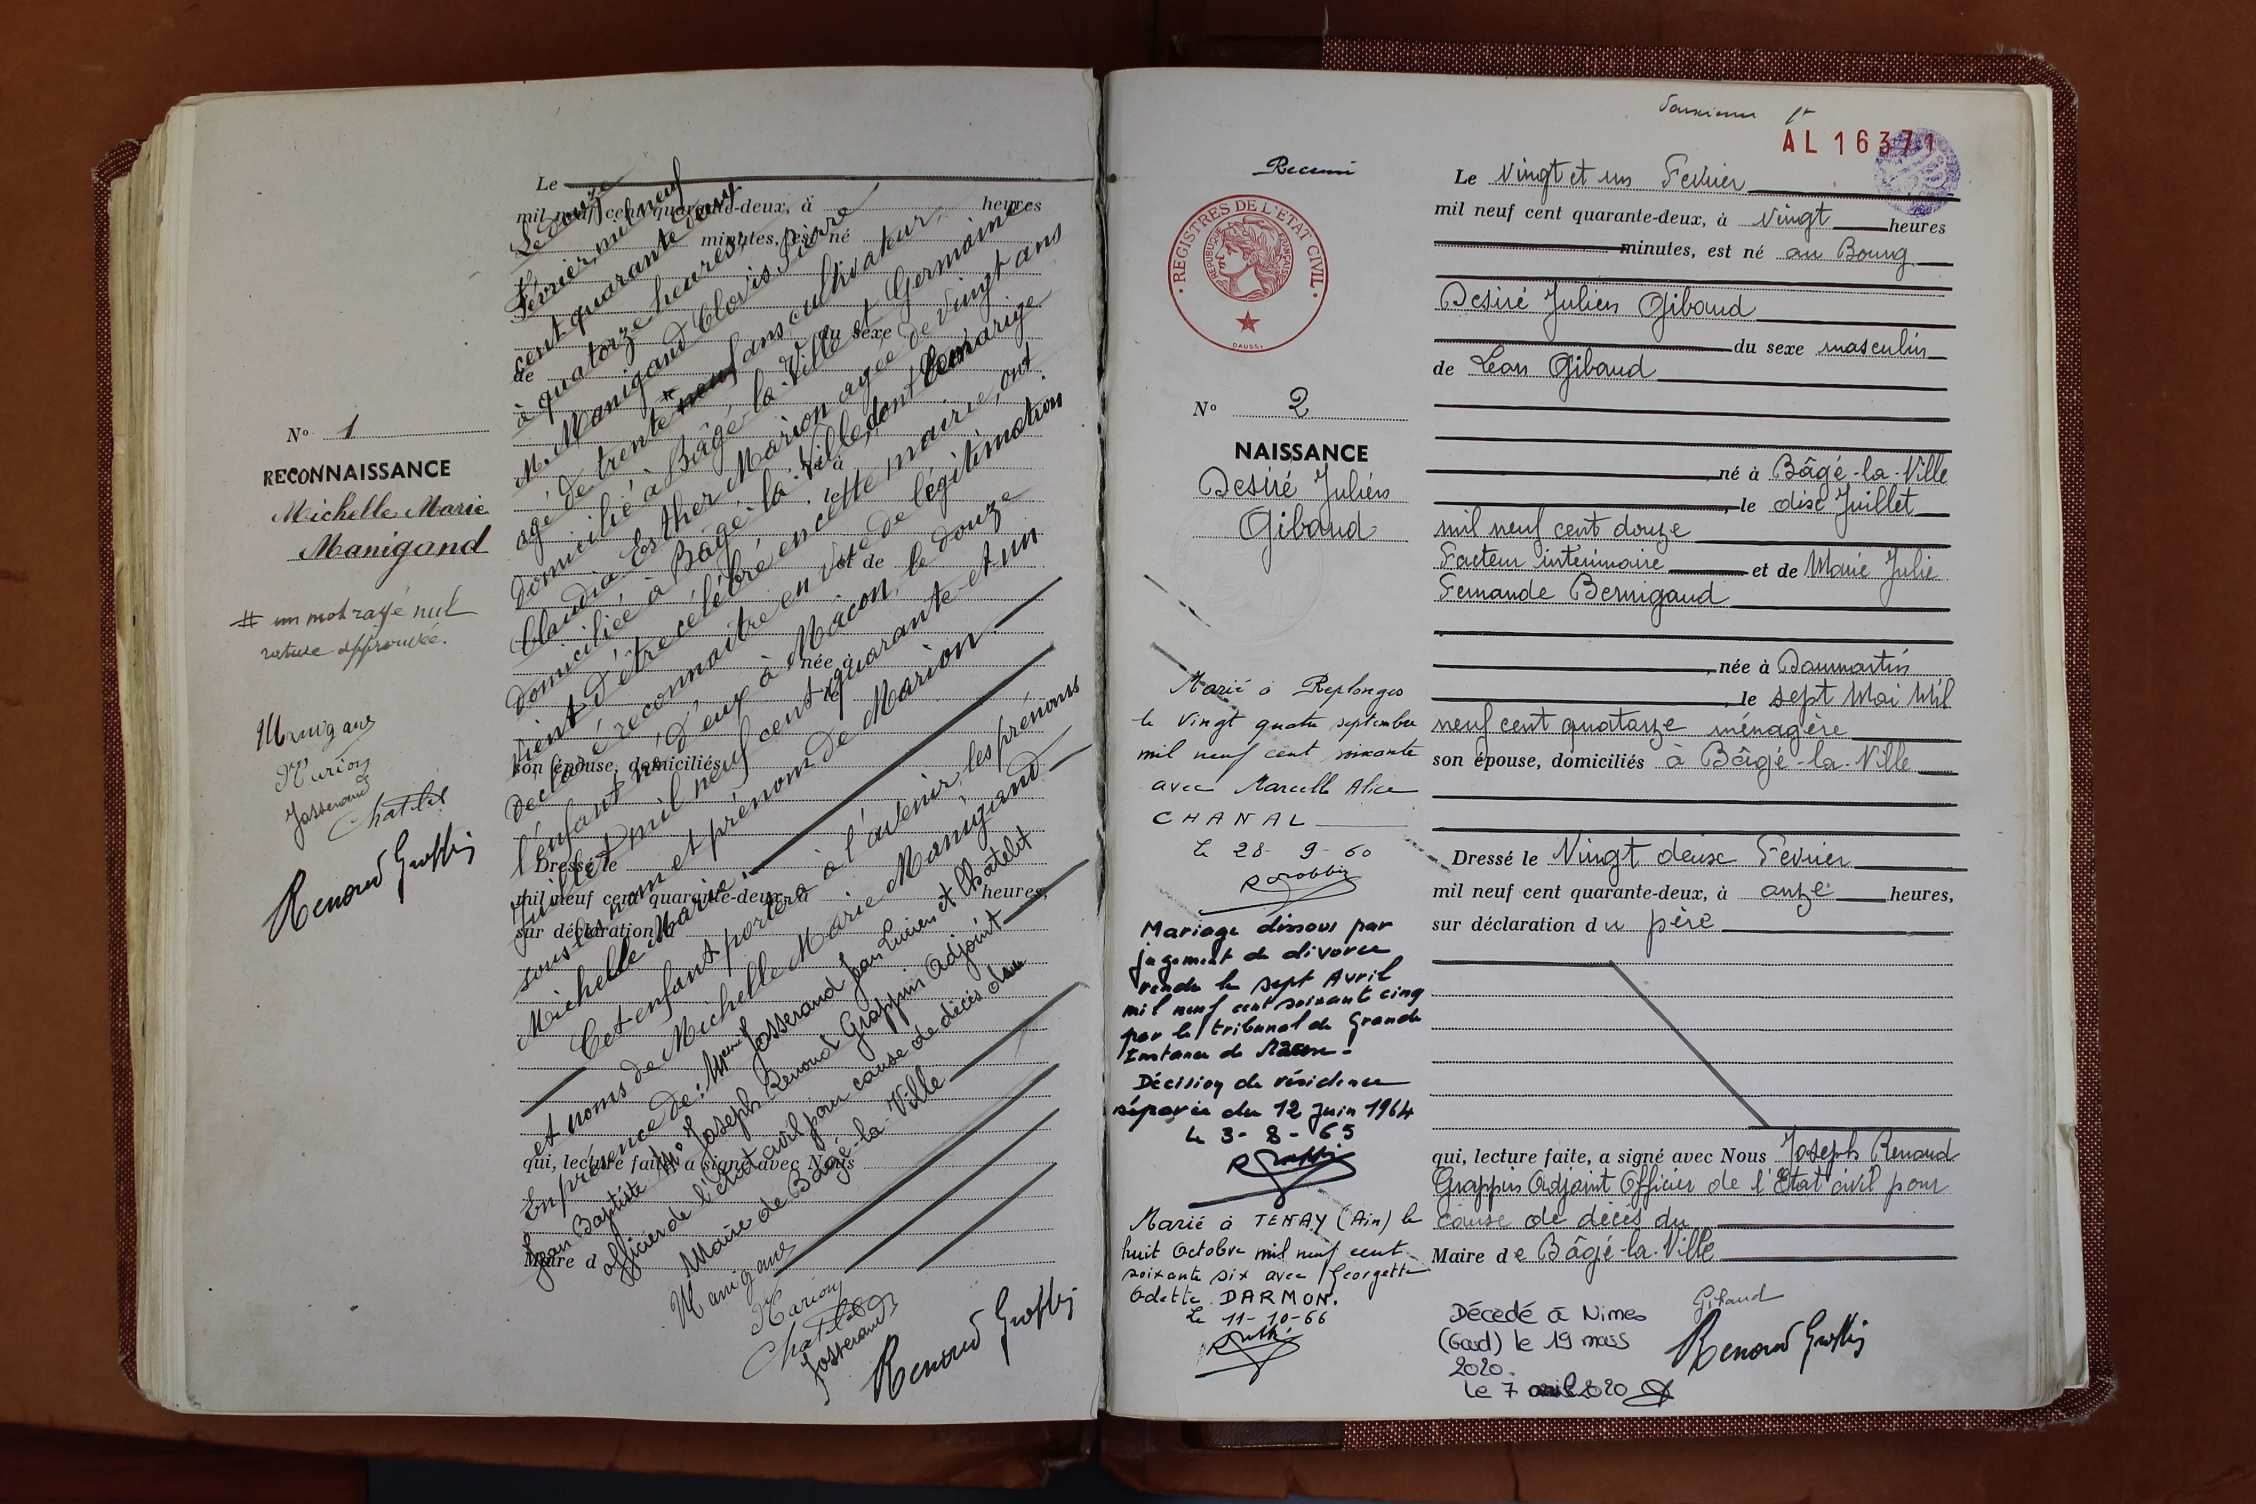 N° 1
RECONNAISSANCE
Michelle Marie
Manigand
# un mot rayé nul
rature approuvée.
Manigand
Marion
Josserand
Chatelet
Renoud Grappin
Le
mil neuf cent quarante-deux, à heures
minutes, est né
du sexe
de
à
le
et de
née à
le
son épouse, domiciliés
Dressé le
mil neuf cent quarante-deux, à heures,
sur déclaration d
qui, lecture faite, a signé avec Nous
Maire d
Le douze
Février, mil neuf
cent quarante deux
à quatorze heures
M. Manigand Clovis Pierre
agé de trente * neuf ans cultivateur,
domicilié à Bâgé-la-Ville et Germaine
Claudia Esther Marion agée de vingt ans
domiciliée à Bâgé-la-Ville, dont le mariage
vient d'être célébré en cette mairie, ont
déclaré reconnaître en vue de légitimation
l'enfant né d'eux à Mâcon, le douze
Juillet mil neuf cent quarante-et-un
sous les nom et prénom de Marion
Michelle Marie.
Cet enfant portera à l'avenir, les prénoms
et noms de Michelle Marie Manigand
En présence de: Josserand Jean Lucien et Chatelet
Jean Baptiste Joseph Renoud Grappin Adjoint
officier de l'état civil pour cause de décès du
Maire de Bâgé-la-Ville
Manigand
Marion
Chatelet
Josserand
Renoud Grappin
AL 16371
Recensé
REGISTRES DE L'ETAT CIVIL
REPUBLIQUE FRANÇAISE
DAUSSY
N° 2
NAISSANCE
Desiré Julien
Gibaud
Marié à Replonges
le vingt quatre septembre
mil neuf cent soixante
avec Marcelle Alice
CHANAL
Le 28-9-60
Mariage dissous par
jugement de divorce
rendu le sept Avril
mil neuf cent soixante cinq
par le tribunal de Grande
Instance de Mâcon.
Décision de résidence
séparée du 12 Juin 1964
Le 3-8-65
Marié à TENAY (Ain) le
huit Octobre mil neuf cent
soixante six avec Georgette
Odette DARMON.
Le 11-10-66
Le Vingt et un Fevrier
mil neuf cent quarante-deux, à vingt heures
minutes, est né au Bourg
Desiré Julien Gibaud
du sexe masculin
de Léon Gibaud
né à Bâgé-la-Ville
, le dix Juillet
mil neuf cent douze
Facteur intérimaire et de Marie Julie
Fernande Bernigaud
, née à Dommartin
, le sept Mai Mil
neuf cent quatorze ménagère
son épouse, domiciliés à Bâgé-la-Ville
Dressé le Vingt deux Fevrier
mil neuf cent quarante-deux, à onze heures,
sur déclaration du père
qui, lecture faite, a signé avec Nous Joseph Renoud
Grappin Adjoint Officier de l'Etat civil pour
cause de décès du
Maire de Bâgé-la-Ville
Gibaud
Renoud Grappin
Décédé à Nimes
(Gard) le 19 mars
2020.
Le 7 avril 2020